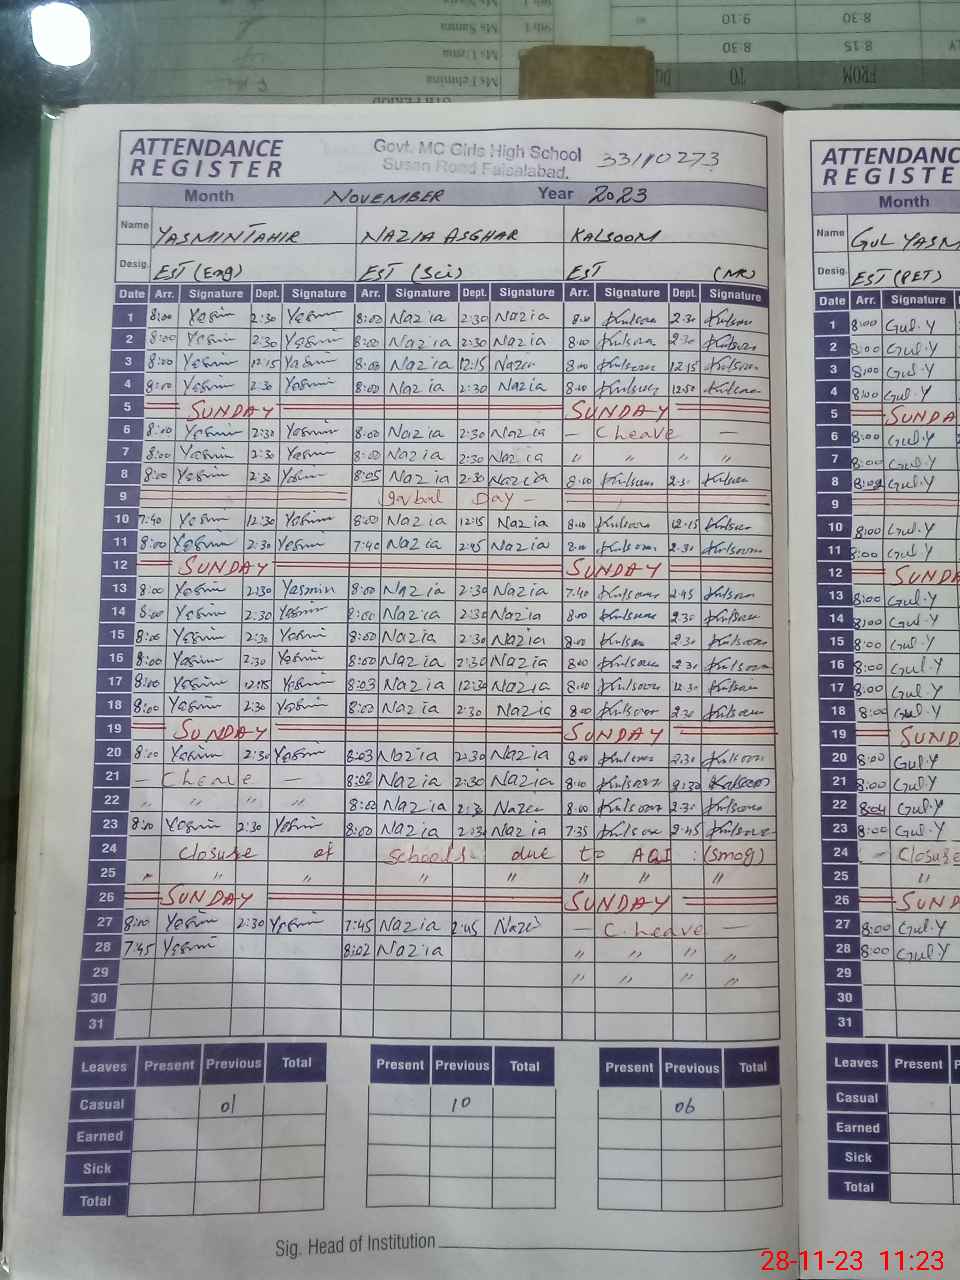 ATTENDANCE REGISTER
Govt. MC Girls High School
Susan Road Faisalabad.
33110273
Month NOVEMBER Year 2023
Name YASMIN TAHIR NAZIA ASGHAR KALSOOM
Desig. EST (Eng) EST (Sci) EST
Date Arr. Signature Dept. Signature Arr. Signature Dept. Signature Arr. Signature Dept. Signature
1 8:00 Yasmin 2:30 Yasmin 8:00 Nazia 2:30 Nazia 8:00 Kulsoom 2:30 Kulsoom
2 8:00 Yasmin 2:30 Yasmin 8:00 Nazia 2:30 Nazia 8:00 Kulsoom 2:30 Kulsoom
3 8:00 Yasmin 12:15 Yasmin 8:00 Nazia 12:15 Nazia 8:00 Kulsoom 12:15 Kulsoom
4 8:00 Yasmin 2:30 Yasmin 8:00 Nazia 2:30 Nazia 8:00 Kulsoom Kulsoom
5 SUNDAY SUNDAY
6 8:00 Yasmin 2:30 Yasmin 8:00 Nazia 2:30 Nazia — C heave —
7 8:00 Yasmin 2:30 Yasmin 8:00 Nazia 2:30 Nazia " " " "
8 8:00 Yasmin 2:30 Yasmin 8:05 Nazia 2:30 Nazia 8:00 Kulsoom 2:30 Kulsoom
9 Day -
10 7:40 Yasmin 12:30 Yasmin 8:00 Nazia 12:15 Nazia 8:00 Kulsoom 12:15 Kulsoom
11 8:00 Yasmin 2:30 Yasmin 7:40 Nazia 2:45 Nazia 8:00 Kulsoom 2:30 Kulsoom
12 SUNDAY SUNDAY
13 8:00 Yasmin 2:30 Yasmin 8:00 Nazia 2:30 Nazia 7:40 Kulsoom 2:45 Kulsoom
14 8:00 Yasmin 2:30 Yasmin 8:00 Nazia 2:30 Nazia 8:00 Kulsoom 2:30 Kulsoom
15 8:00 Yasmin 2:30 Yasmin 8:00 Nazia 2:30 Nazia 8:00 Kulsoom 2:30 Kulsoom
16 8:00 Yasmin 2:30 Yasmin 8:00 Nazia 2:30 Nazia 8:00 Kulsoom 2:30 Kulsoom
17 8:00 Yasmin 12:15 Yasmin 8:03 Nazia 12:30 Nazia 8:00 Kulsoom 12:30 Kulsoom
18 8:00 Yasmin 2:30 Yasmin 8:00 Nazia 2:30 Nazia 8:00 Kulsoom 2:30 Kulsoom
19 SUNDAY SUNDAY
20 8:00 Yasmin 2:30 Yasmin 8:03 Nazia 2:30 Nazia 8:00 Kulsoom 2:30 Kulsoom
21 — C heave — 8:02 Nazia 2:30 Nazia 8:00 Kulsoom 2:30 Kulsoom
22 " " " " 8:00 Nazia 2:30 Nazia 8:00 Kulsoom 2:30 Kulsoom
23 8:00 Yasmin 2:30 Yasmin 8:00 Nazia 2:30 Nazia 7:35 Kulsoom 2:45 Kulsoom
24 Closure of schools due to AQI : (smog)
25 " " " " " " " "
26 SUNDAY SUNDAY
27 8:00 Yasmin 2:30 Yasmin 7:45 Nazia 2:45 Nazia — C. heave —
28 7:45 Yasmin 8:02 Nazia " " " "
29 " " " "
30
31
Leaves Present Previous Total Present Previous Total Present Previous Total
Casual 01 10 06
Earned
Sick
Total
Sig. Head of Institution
ATTENDANC
REGISTE
Month
Name GUL YASM
Desig. EST (PET)
Date Arr. Signature
1 8:00 Gul.Y
2 8:00 Gul.Y
3 8:00 Gul.Y
4 8:00 Gul.Y
5 SUNDA
6 8:00 Gul.Y
7 8:00 Gul.Y
8 Gul.Y
9
10 8:00 Gul.Y
11 8:00 Gul.Y
12 SUNDA
13 8:00 Gul.Y
14 8:00 Gul.Y
15 8:00 Gul.Y
16 8:00 Gul.Y
17 8:00 Gul.Y
18 8:00 Gul.Y
19 SUND
20 8:00 Gul.Y
21 8:00 Gul.Y
22 8:04 Gul.Y
23 8:00 Gul.Y
24 - Closure
25 "
26 SUND
27 8:00 Gul.Y
28 8:00 Gul.Y
29
30
31
Leaves Present
Casual
Earned
Sick
Total
Ms Samra 8:30 9:10
Ms Uzma 8.15 8:30
Ms Tehmina FROM TO
28-11-23 11:23